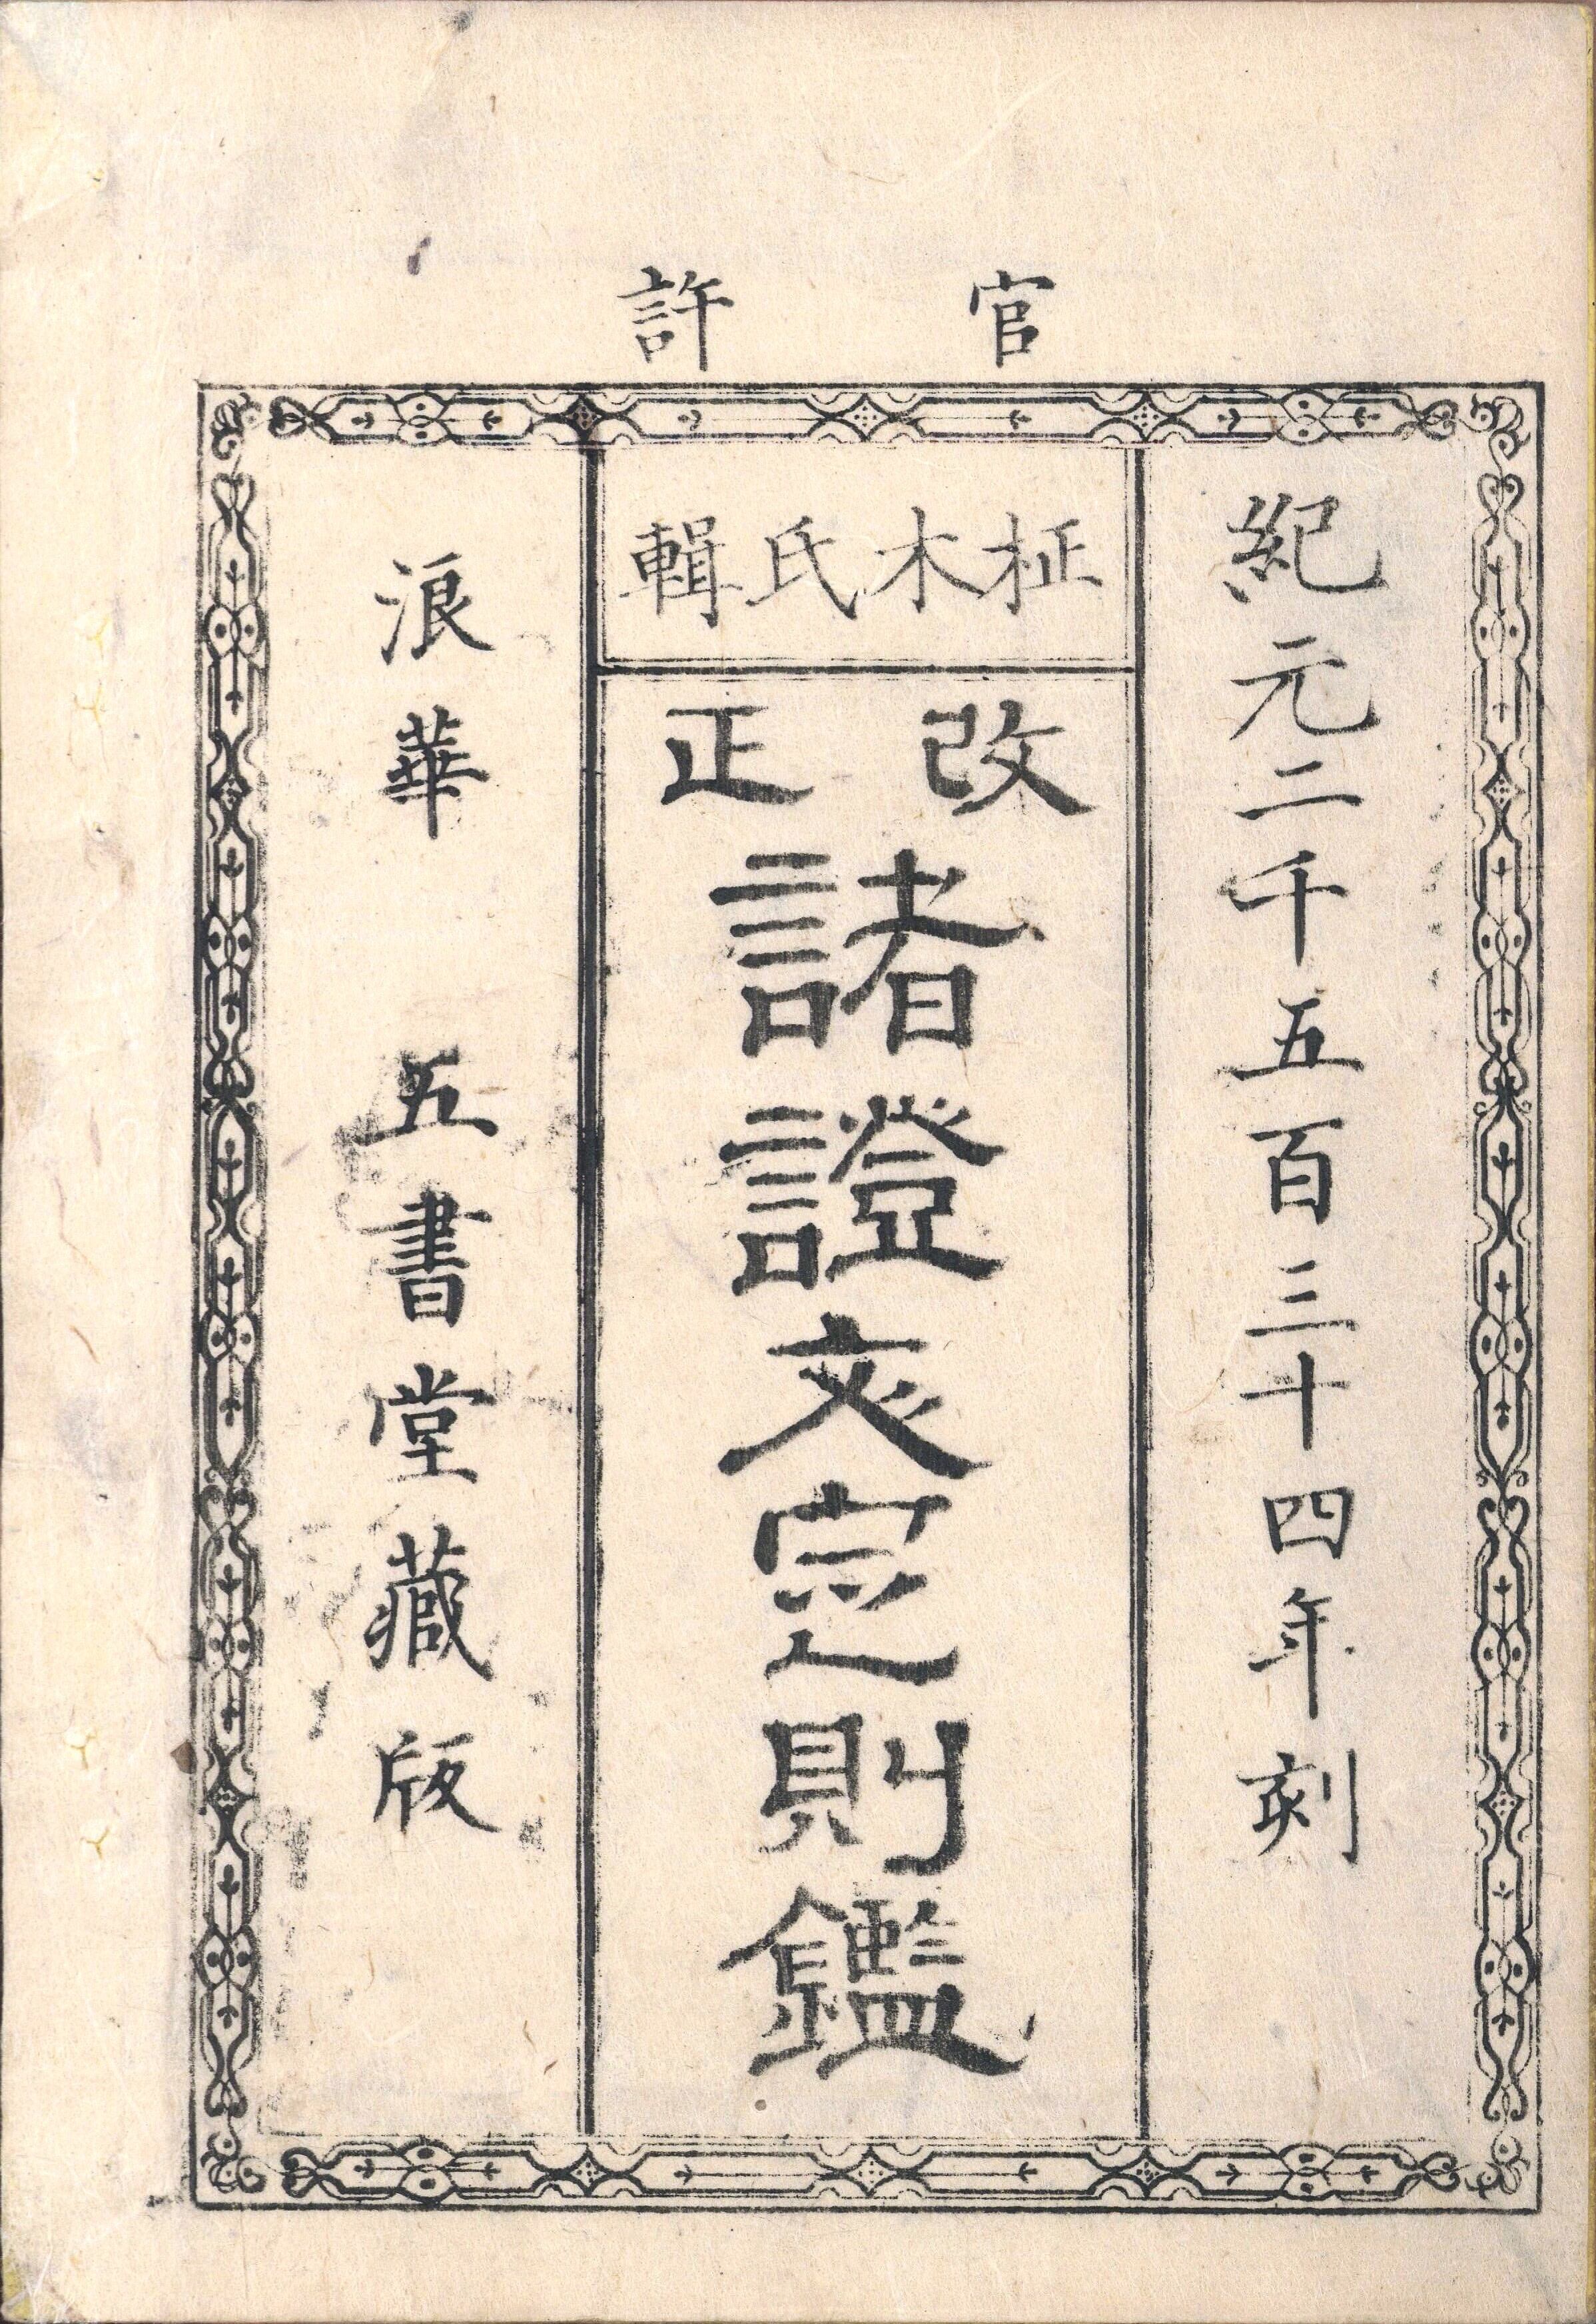 官許
紀元二千五百三十四年刻
柾木氏輯
改正
諸證文定則鑑
浪華 五書堂藏版